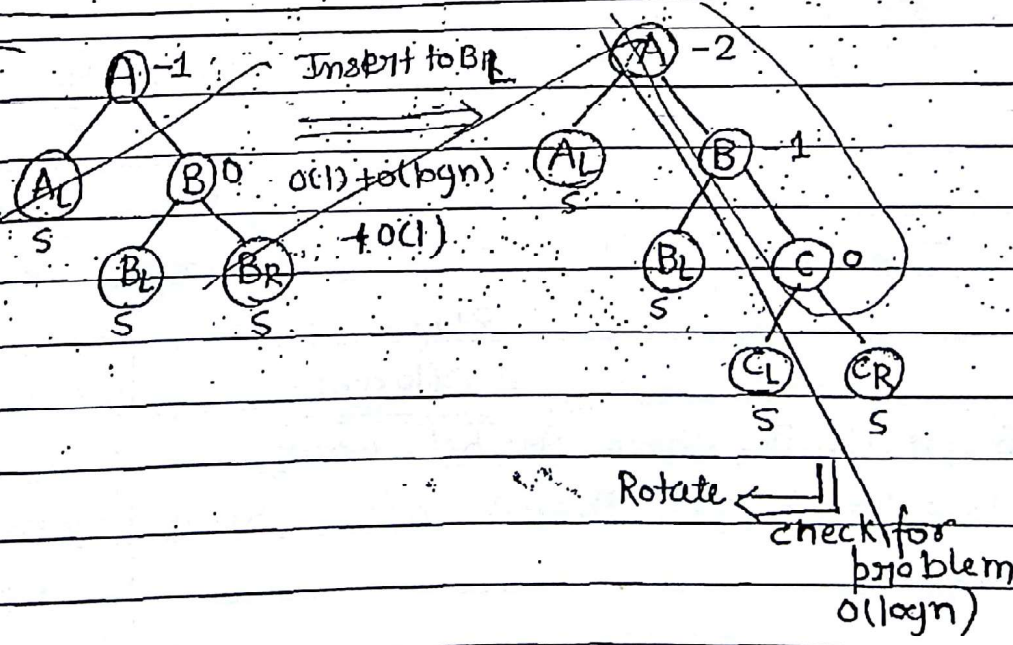 A -1
Insert to BR
A -2
AL
B 0
O(1) to (logn)
+ O(1)
AL
B -1
S
S
BL
BR
BL
C 0
S
S
S
CL
CR
S
S
Rotate
check for
problem
O(logn)